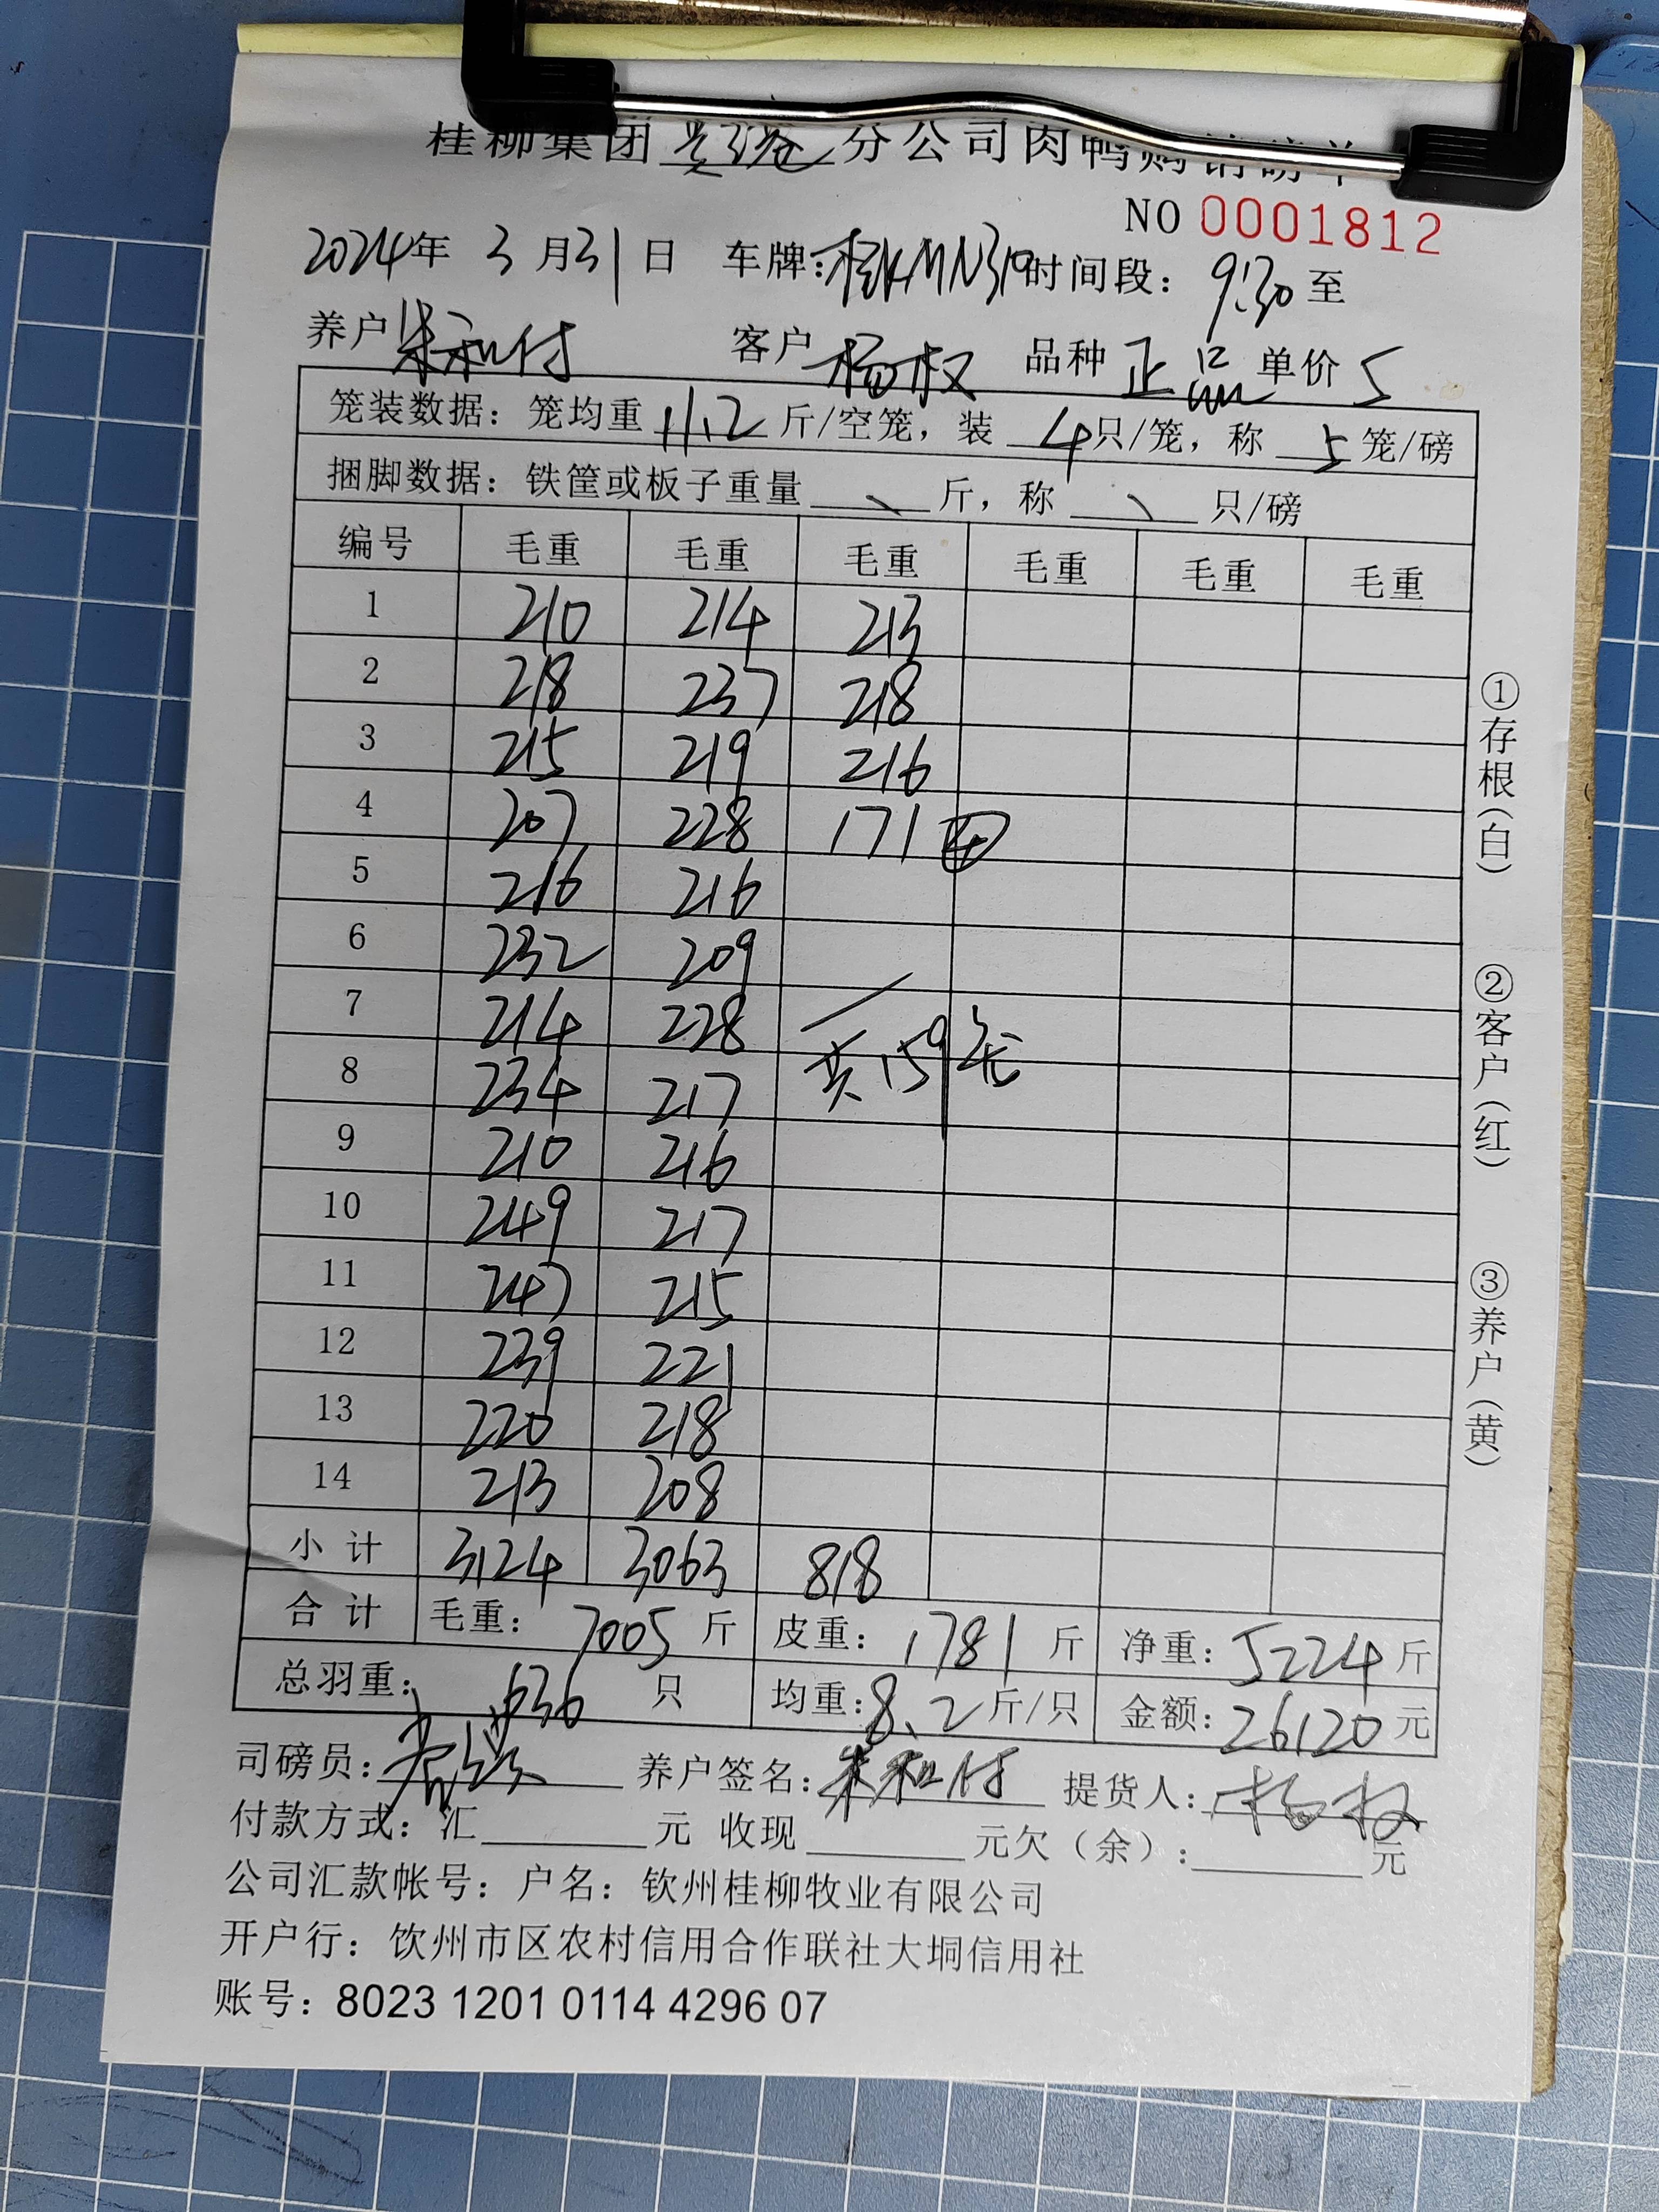 桂柳集团 贵港 分公司肉鸭购销磅单
NO 0001812
2024年 3月31日 车牌:桂KMN319 时间段: 9:30至
养户 朱和付 客户 杨权 品种 正品 单价 5
笼装数据: 笼均重 11.2 斤/空笼, 装 4只/笼, 称 5 笼/磅
捆脚数据: 铁筐或板子重量 \ 斤, 称 \ 只/磅
编号 毛重 毛重 毛重 毛重 毛重 毛重
1 210 214 213
2 218 237 218
3 215 219 216
4 207 228 171 ④
5 216 216
6 232 209
7 214 228
8 234 217 共159笼
9 210 216
10 249 217
11 247 215
12 239 221
13 220 218
14 213 208
小计 3124 3063 818
合计 毛重: 7005 斤 皮重: 1781 斤 净重: 5224斤
总羽重: 636 只 均重: 8.2 斤/只 金额: 26120元
司磅员: 养户签名: 朱和付 提货人: 杨权
付款方式: 汇 元 收现 元欠(余): 元
公司汇款帐号: 户名: 钦州桂柳牧业有限公司
开户行: 钦州市区农村信用合作联社大垌信用社
账号: 8023 1201 0114 4296 07
①存根(白)
②客户(红)
③养户(黄)